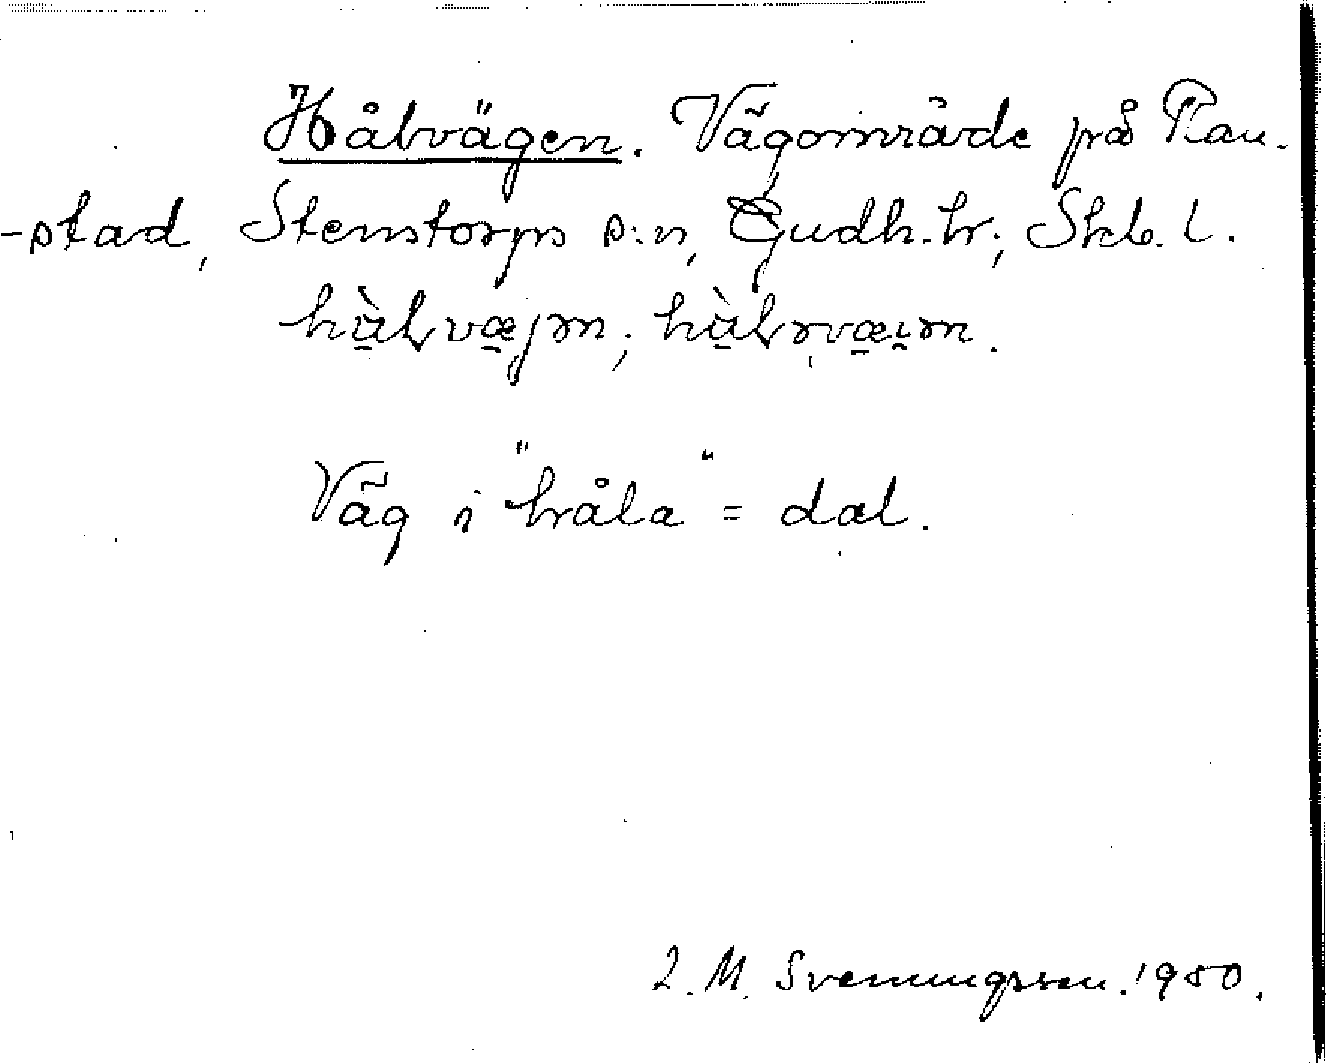 Hålvägen. Vägområde på Rau-
-stad, Stenstorps s:n, Gudh. hr; Skb. l.
hålvæjən; hålvæın.
Väg i "håla" = dal.
L. M. Svenungsson. 1950.